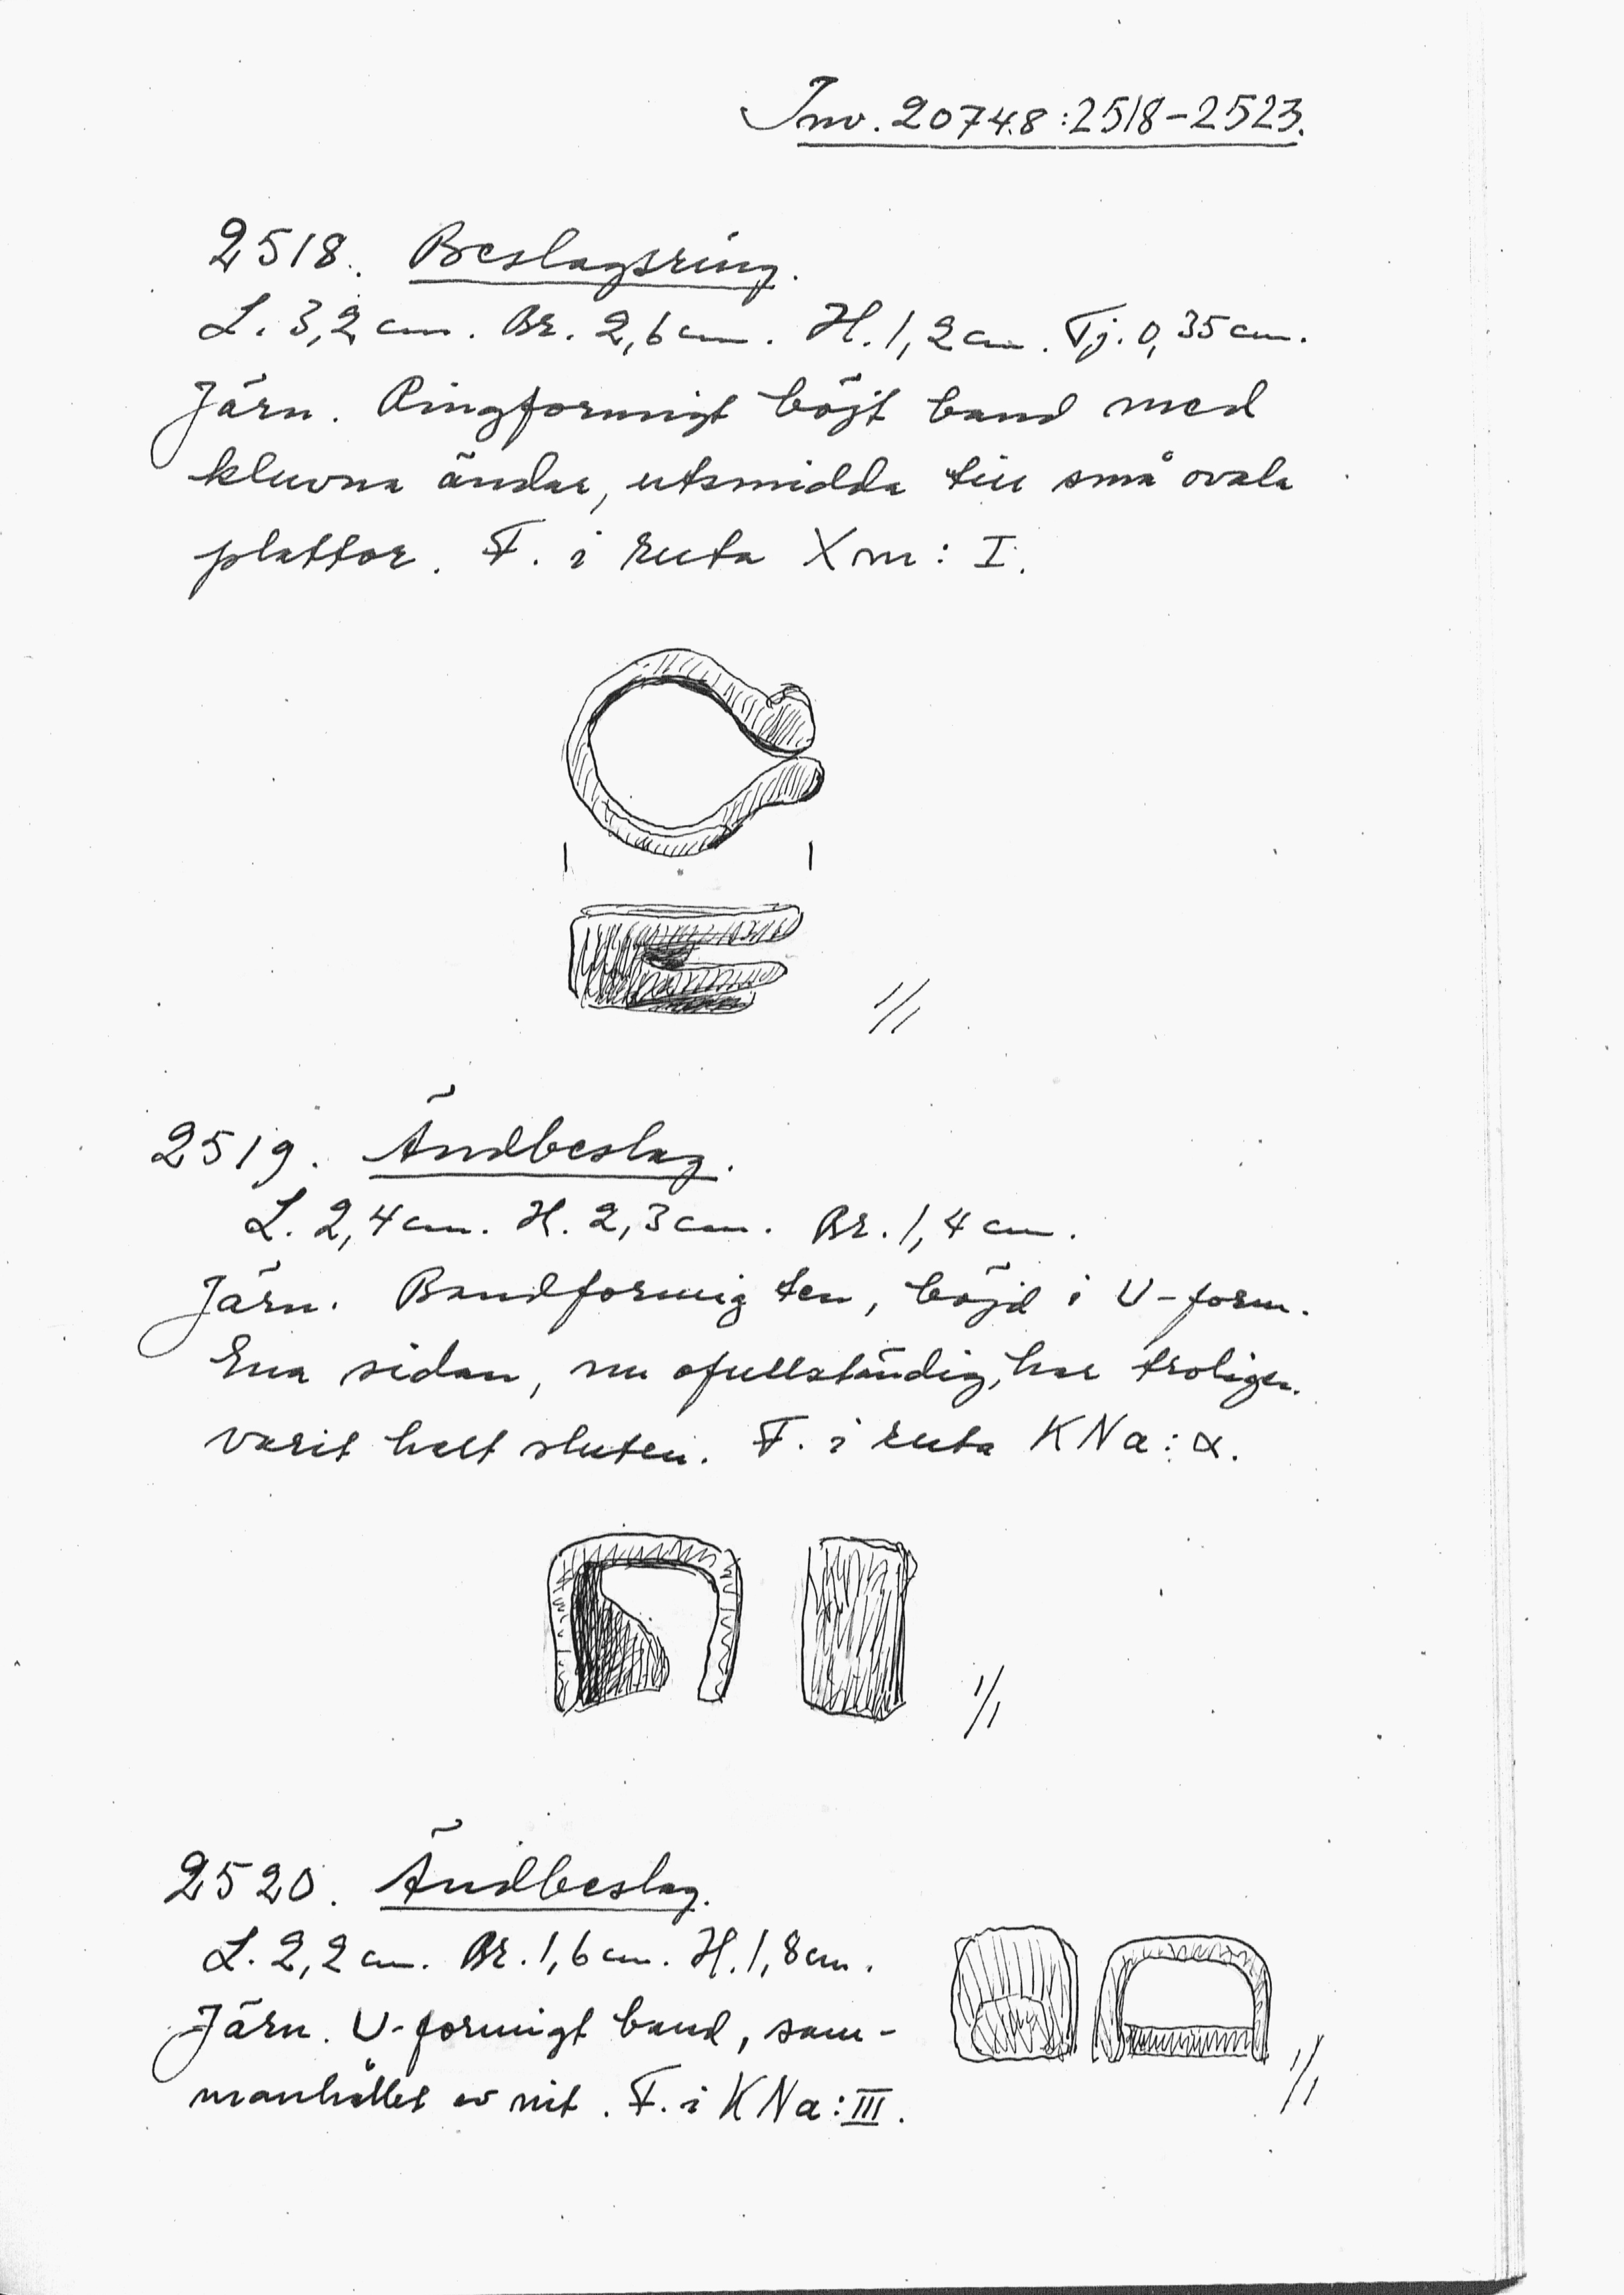 Inv. 20748:2518-2523.
2518. Beslagsring.
L. 3,2 cm. Br. 2,6 cm. H. 1,2 cm. Tj. 0,35 cm.
Järn. Ringformigt böjt band med
kluvna ändar, utsmidda till små ovala
plattor. F. i ruta Xm: I.
1/1
2519. Ändbeslag.
L. 2,4 cm. H. 2,3 cm. Br. 1,4 cm.
Järn. Bandformig ten, böjd i U-form.
Ena sidan, nu ofullständig, har troligen
varit helt sluten. F. i ruta KNa: α.
1/1
2520. Ändbeslag.
L. 2,2 cm. Br. 1,6 cm. H. 1,8 cm.
Järn. U-formigt band, sam-
manhållet av nit. F. i KNa: III.
1/1